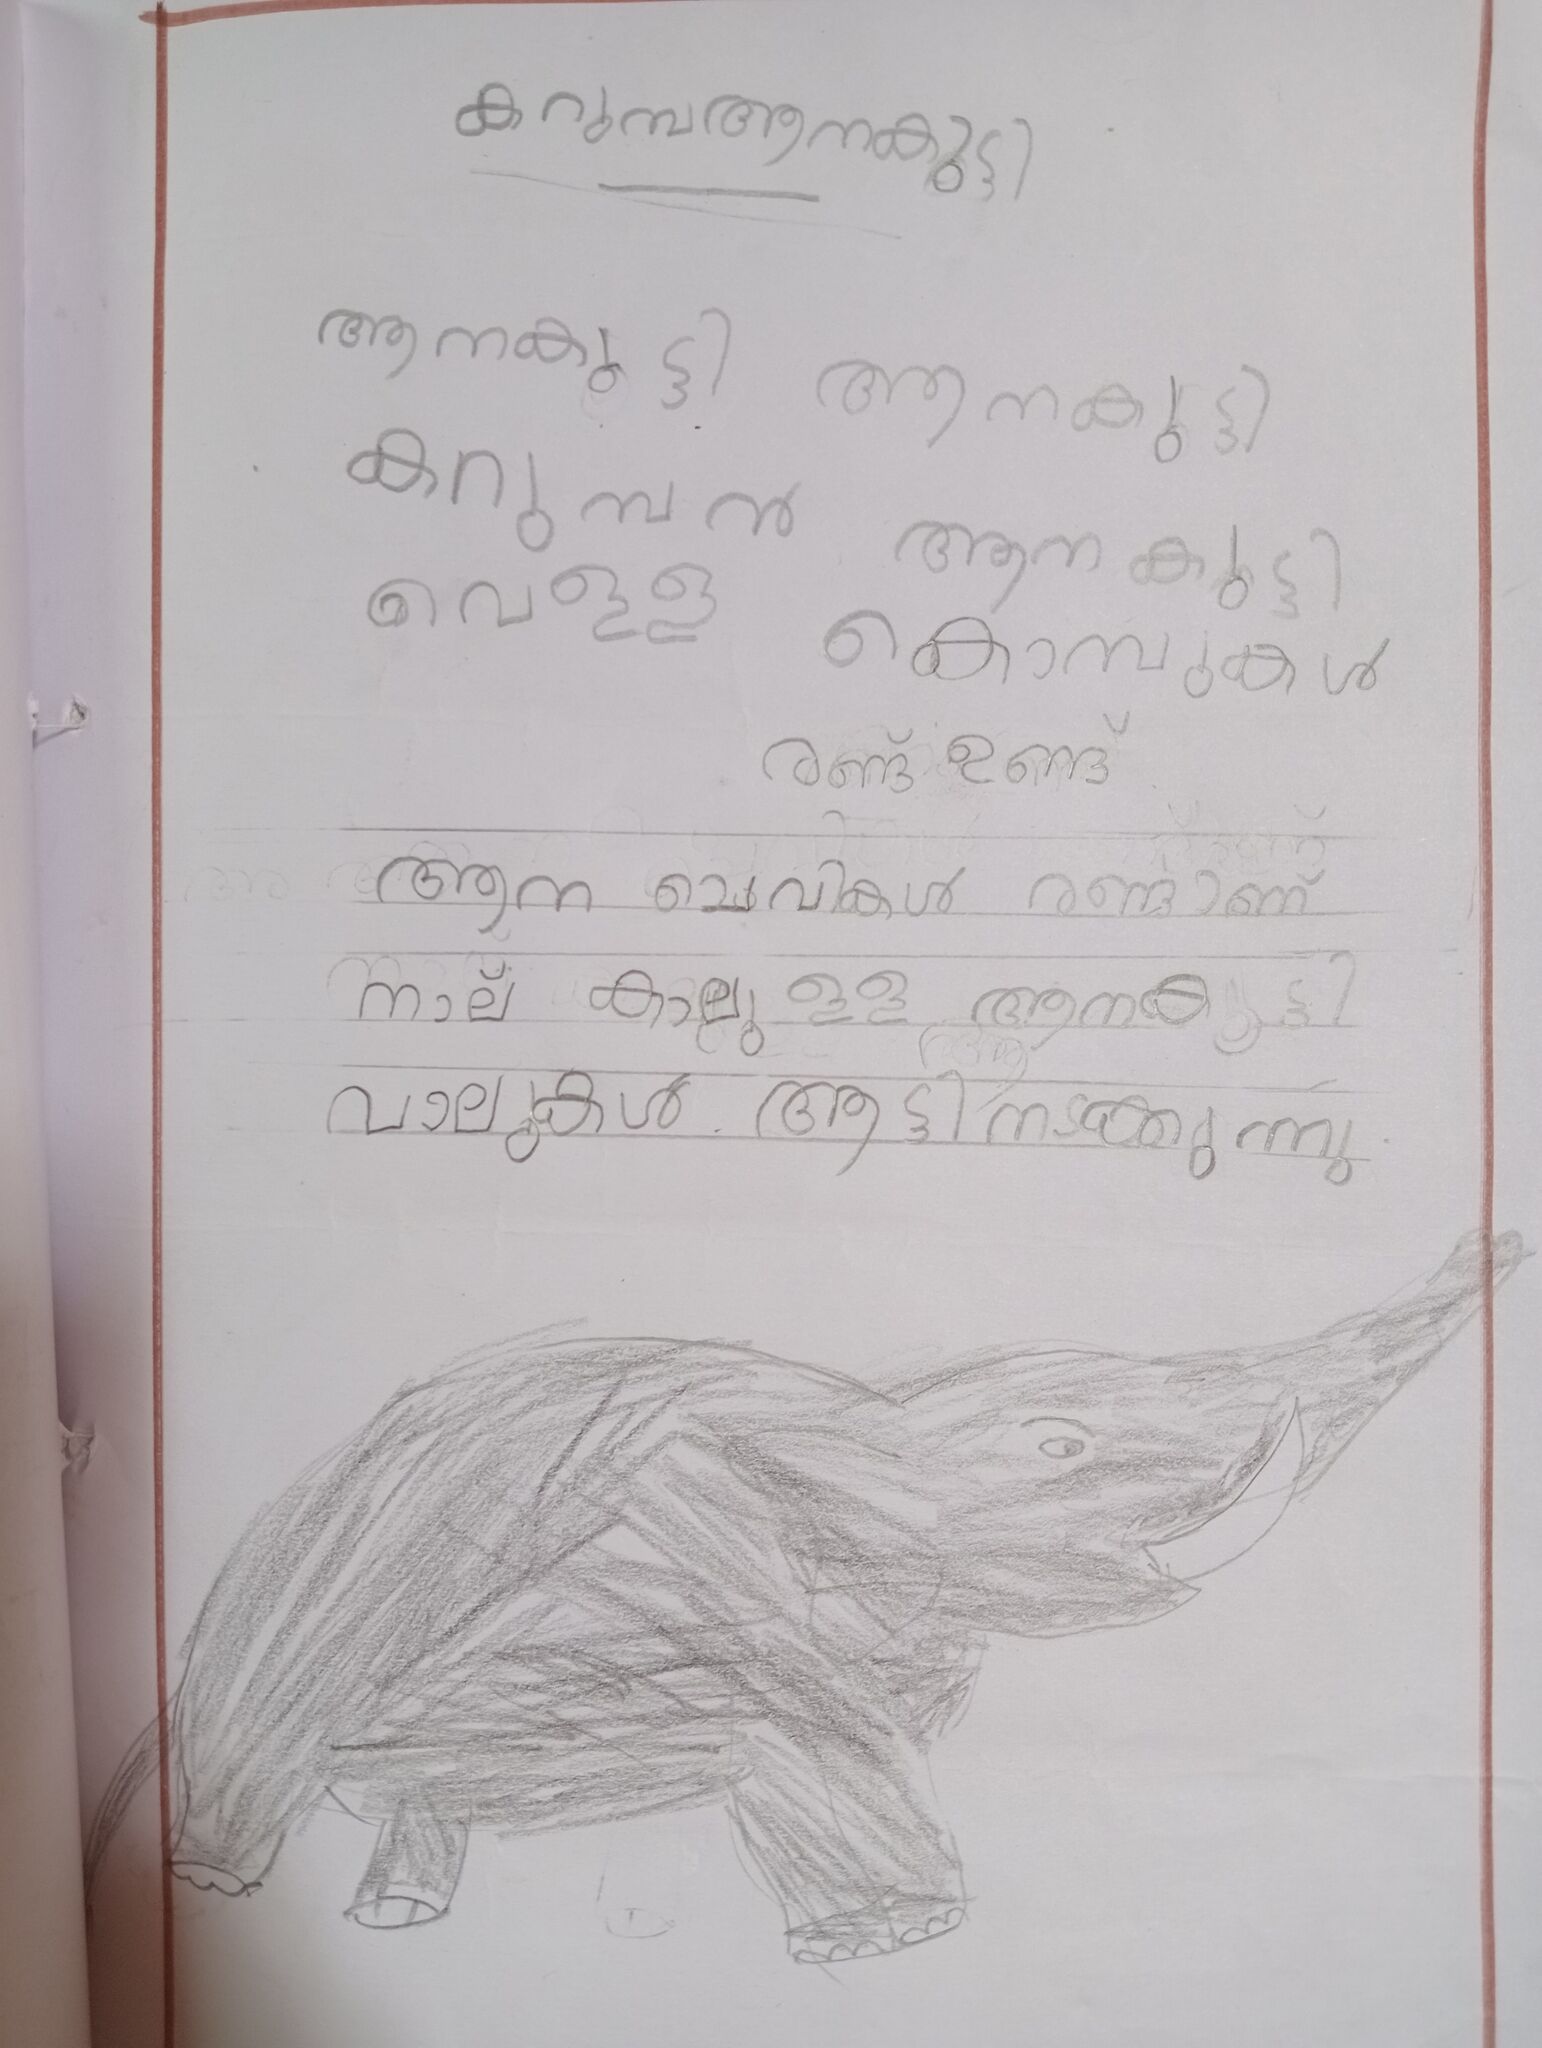 കറുമ്പആനകുട്ടി
ആനകുട്ടി ആനകുട്ടി
കറുമ്പൻ ആനകുട്ടി
വെള്ള കൊമ്പുകൾ
രണ്ട് ഉണ്ട്
ആന ചെവികൾ രണ്ടാണ്
നാല് കാലുള്ള ആനകുട്ടി
വാലുകൾ ആട്ടിനടക്കുന്നു.